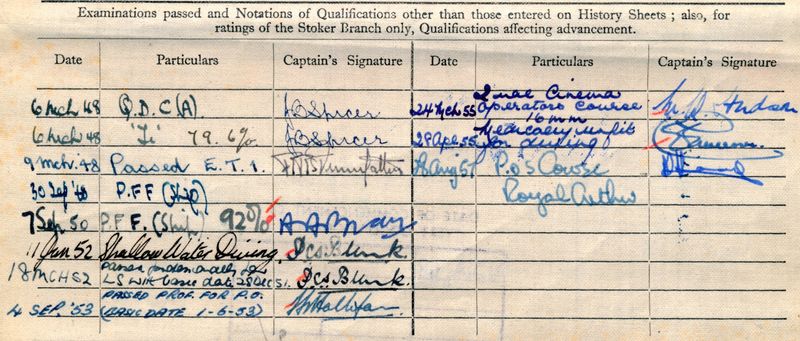 Examinations passed and Notations of Qualifications other than those entered on History Sheets ; also, for
ratings of the Stoker Branch only, Qualifications affecting advancement.
Date Particulars Captain's Signature Date Particulars Captain's Signature
6 Mch 48 Q.D.C (A) Spicer
6 Mch 48 79.6% Spicer
9 Mch. 48 Passed E.T.1.
30 Sep 48 P.F.F (Ship)
7 Sep 50 P.F.F. (Ship) 92% A A Bray
11 Jan 52 Shallow Water Diving.
18 MCH 52 passed professionally for
LS W/R basic date 28 Dec 51.
4 SEP. '53 PASSED PROF. FOR P.O.
(BASIC DATE 1-6-53)
24 Mch 55 Cinema
Operators Course
16 mm Hudson
28 Apl 55 Medically unfit
for diving
Aug 57 P.O's Course
Royal Arthur